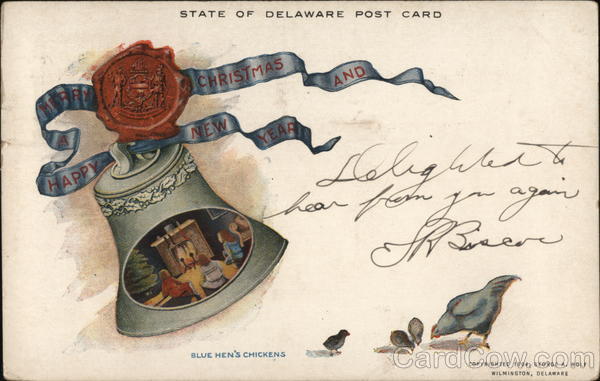 STATE OF DELAWARE POST CARD
MERRY CHRISTMAS AND
A HAPPY NEW YEAR!
Delighted to
hear from you again
BLUE HEN'S CHICKENS
WILMINGTON, DELAWARE
CardCow.com